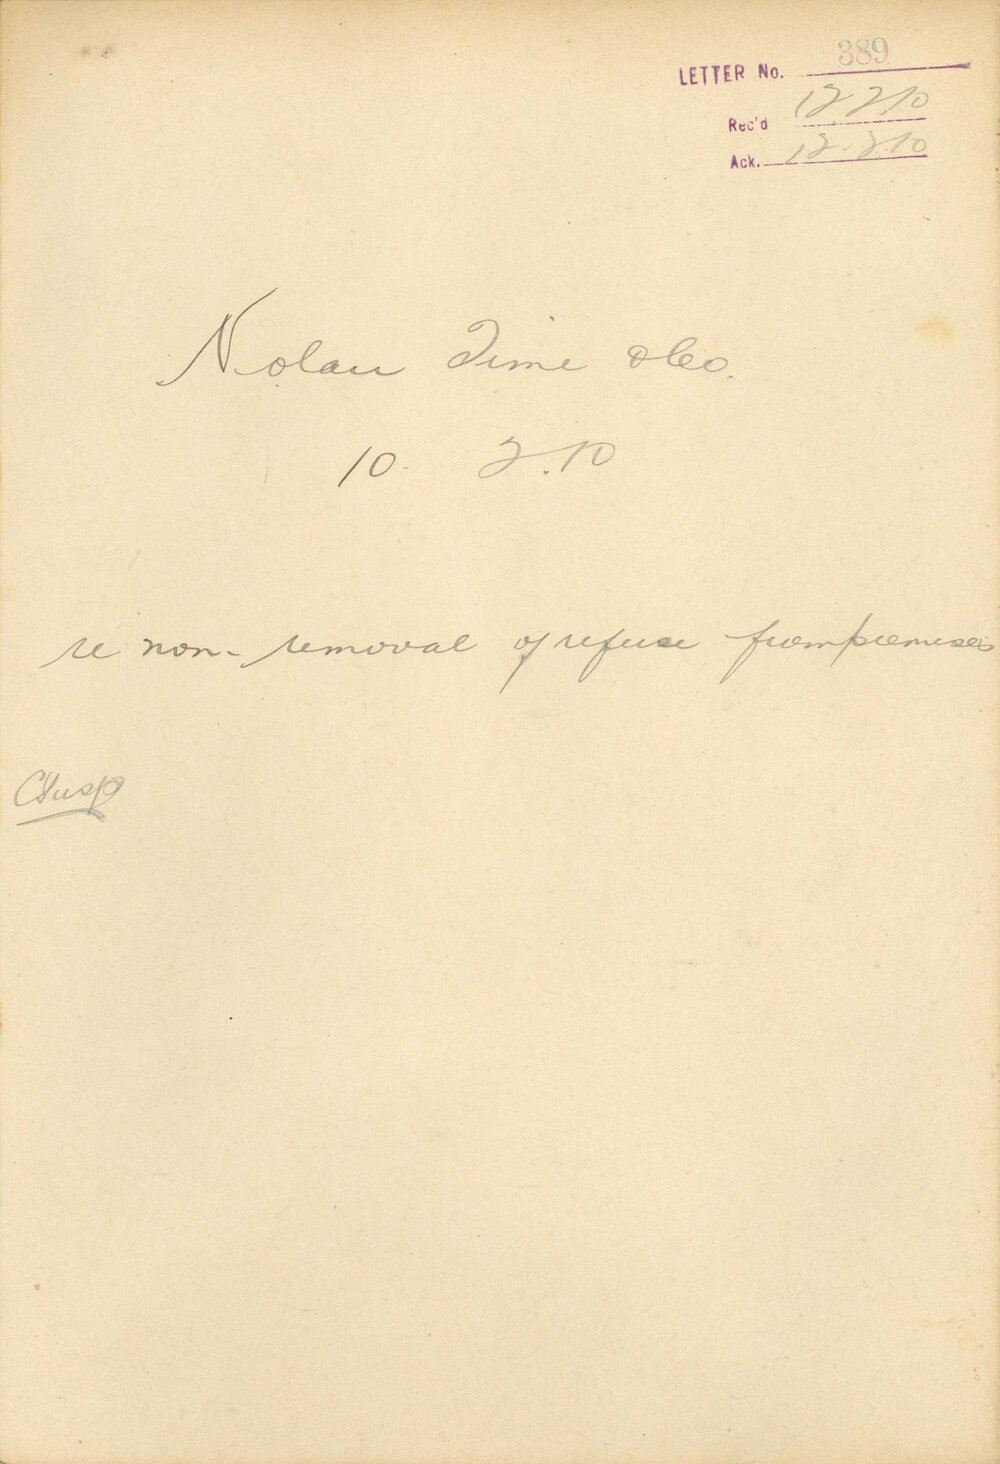 LETTER No. 389
Rec'd 12 2.10
Ack. 12.2.10
Nolan Time & Co.
10. 2.10
re non-removal of refuse from premises